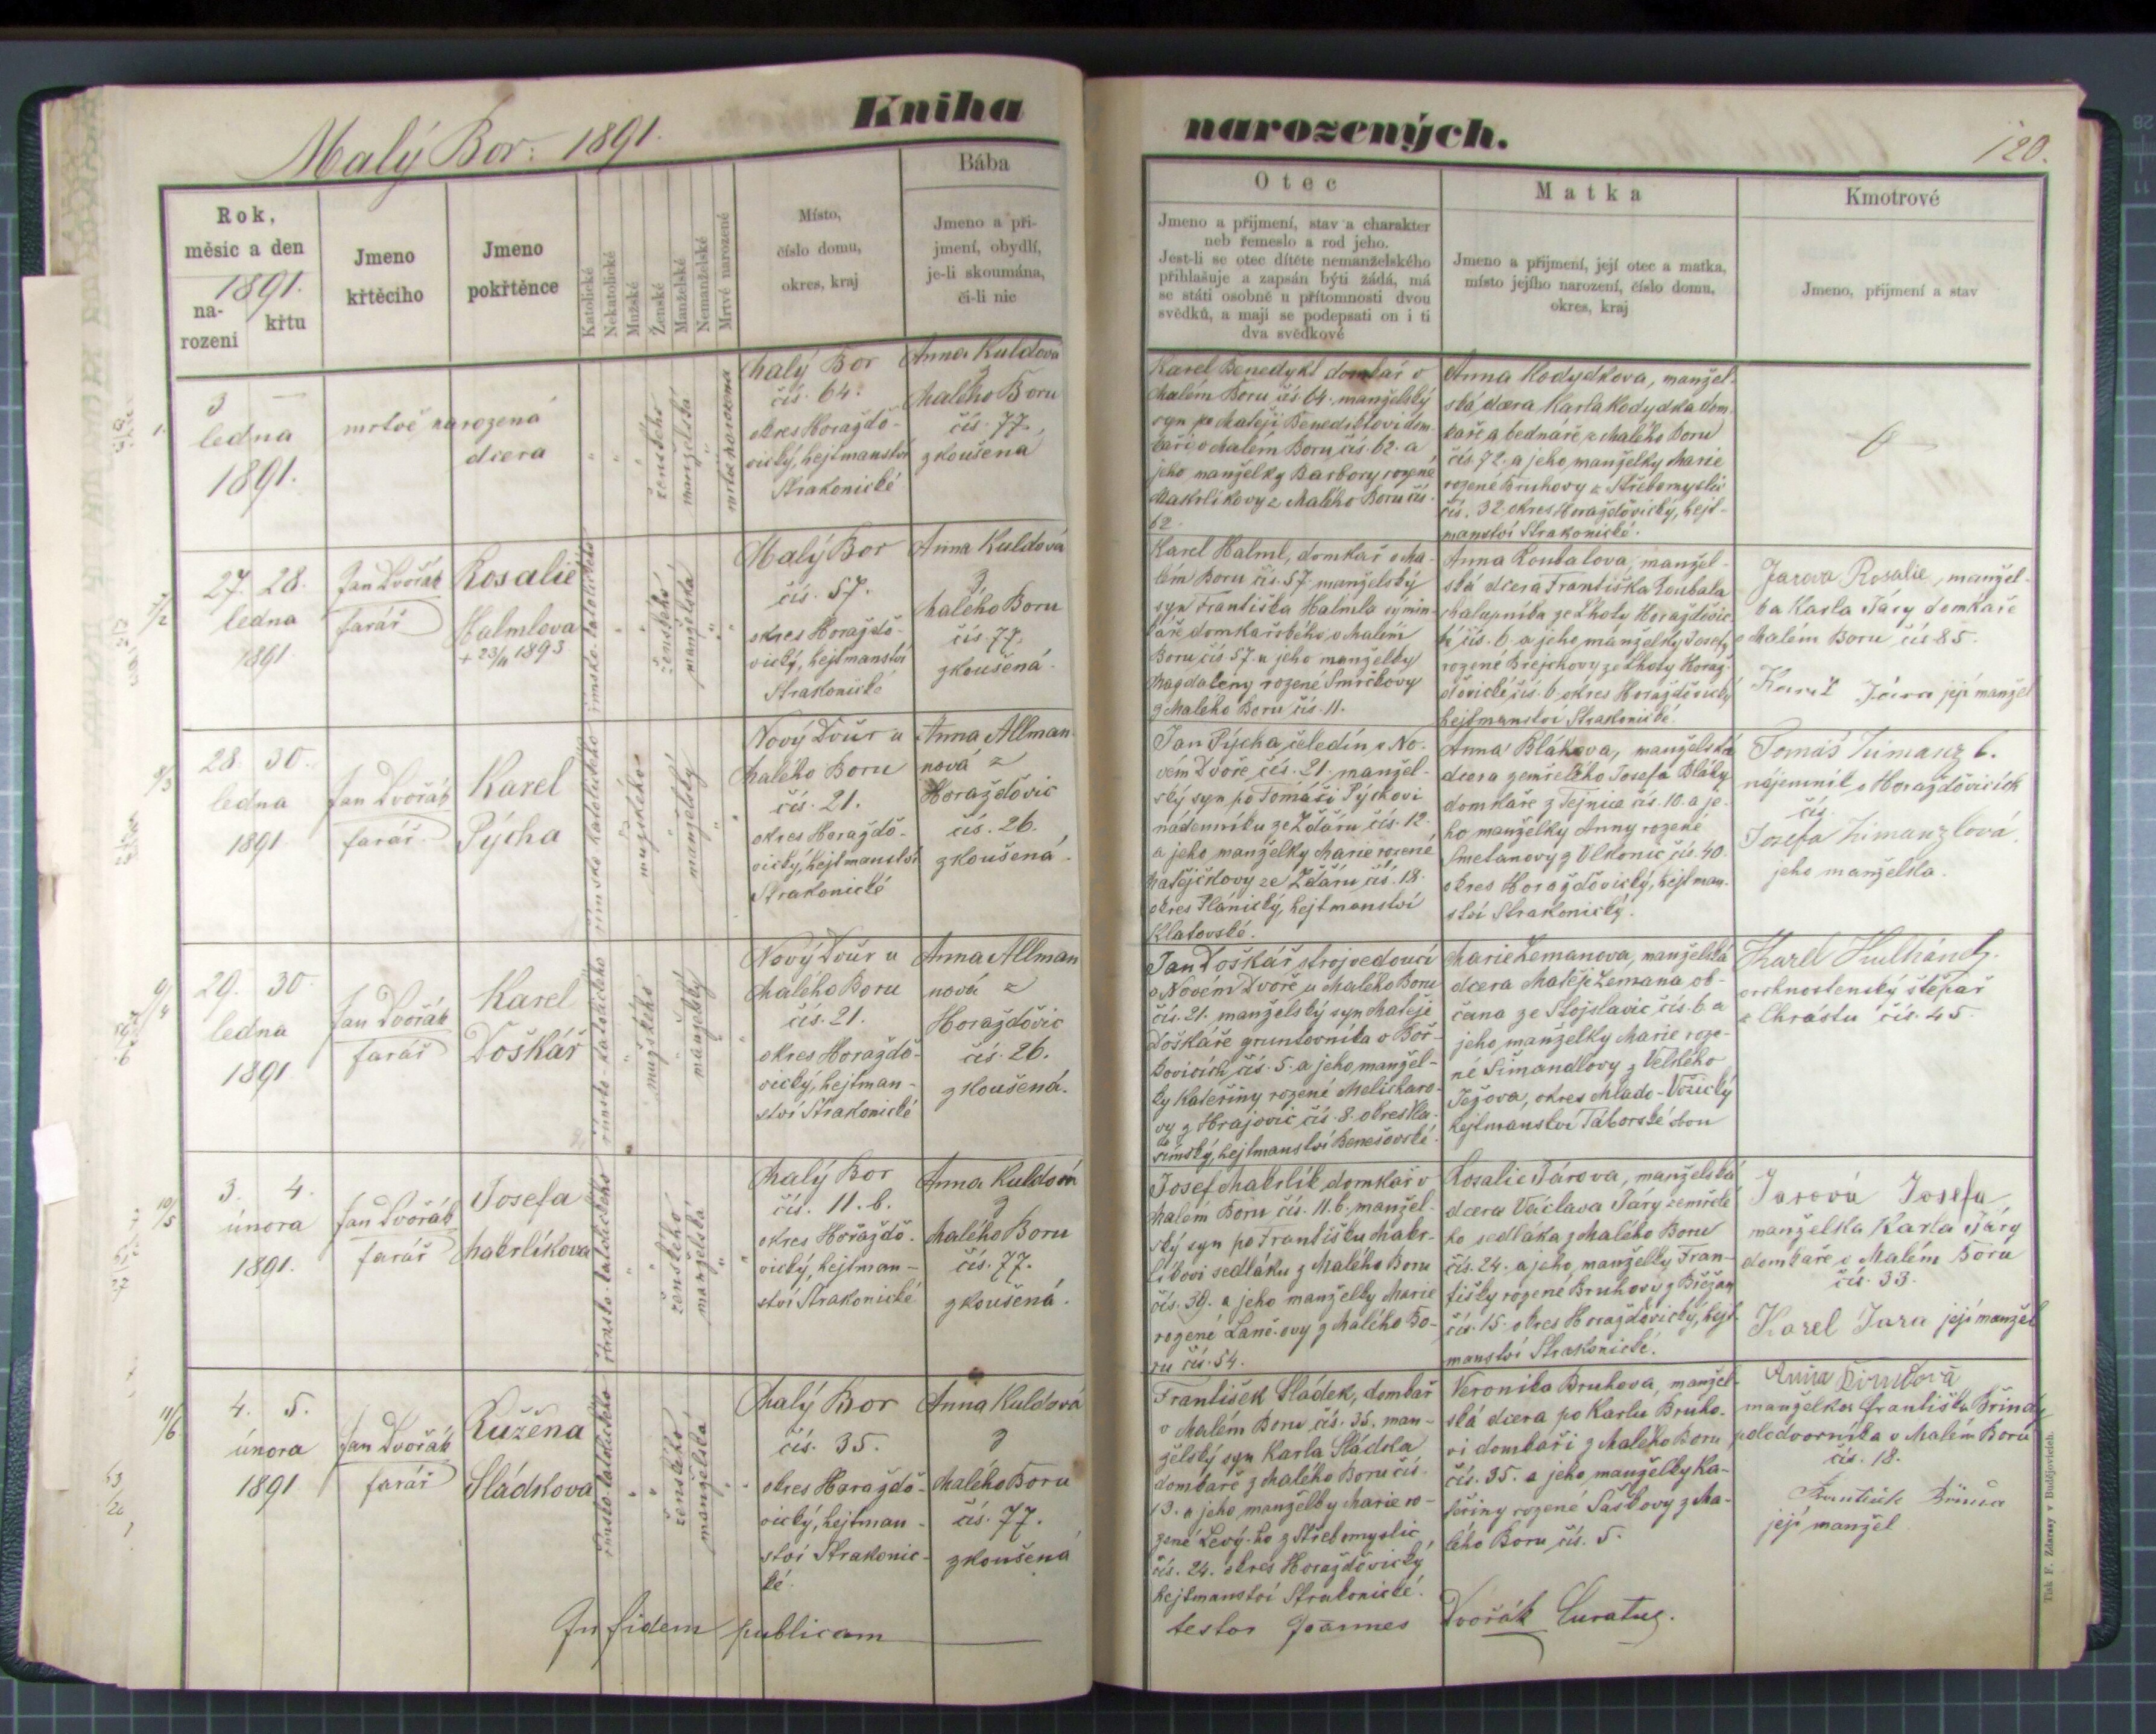 Malý Bor: 1891.
Kniha
narozených.
120.
Rok,
měsíc a den
1891.
na-
rozeni
křtu
Jmeno
křtěcího
Jmeno
pokřtěnce
Katolické
Nekatolické
Mužské
Ženské
Manželské
Nemanželské
Mrtvě narozené
Místo,
číslo domu,
okres, kraj
Bába
Jmeno a při-
jmení, obydlí,
je-li skoumána,
či-li nic
Otec
Jmeno a přijmení, stav a charakter
neb řemeslo a rod jeho.
Jest-li se otec dítěte nemanželského
přihlašuje a zapsán býti žádá, má
se státi osobně u přítomnosti dvou
svědků, a mají se podepsati on i ti
dva svědkové
Matka
Jmeno a přijmení, její otec a matka,
místo jejího narození, číslo domu,
okres, kraj
Kmotrové
Jmeno, přijmení a stav
1.
3
ledna
1891.
mrtvě narozená
dcera
ženského
manželská
mrtvě narozená
Malý Bor
čís. 64.
okres Horaždo-
vický, hejtmanství
Strakonické
Anna Kuldova
z
Malého Boru
čís. 77,
zkoušená
Karel Benedykt domkář v
Malém Boru čís. 64. manželský
syn po Matěji Benediktovi dom-
káři v Malém Boru čís. 62. a
jeho manželky Barbory rozené
Makrlíkovy z Malého Boru čís.
62.
Anna Kodydkova, manžel-
ská dcera Karla Kodydka dom-
káře a bednáře z Malého Boru
čís. 72. a jeho manželky Marie
rozené Bruhovy z Střebomyslic
čís. 32. okres Horaždovický, hejt-
manství Strakonické.
27. 28.
ledna
1891
Jan Dvořák
farář
Rosalie
Halmlova
+ 23/11 1893
římsko-katolického
ženského
manželská
Malý Bor
čís. 57.
okres Horaždo-
vický, hejtmanství
Strakonické
Anna Kuldová
z
Malého Boru
čís. 77.
zkoušená.
Karel Halml, domkář v Ma-
lém Boru čís. 57. manželský
syn Františka Halmla výmin-
káře domkářského v Malém
Boru čís. 57. a jeho manželky
Magdaleny rozené Smrčkovy
z Malého Boru čís. 11.
Anna Koubalova, manžel-
ská dcera Františka Koubala
chalupníka ze Lhoty Horaždovic-
k. čís. 6. a jeho manželky Josefy
rozené Brejchovy ze Lhoty Horaž-
dovické čís. 6. okres Horaždovický
hejtmanství Strakonické.
Jarova Rosalie, manžel-
ka Karla Járy domkáře
v Malém Boru čís 85.
Karel Jára její manžel
28. 30.
ledna
1891
Jan Dvořák
farář
Karel
Pýcha
římsko katolického
mužského
manželský
Nový Dvůr u
Malého Boru
čís. 21.
okres Horaždo-
vický, hejtmanství
Strakonické
Anna Allman-
nová z
Horaždovic
čís. 26.
zkoušená.
Jan Pýcha, čeledín v No-
vém Dvoře čís. 21. manžel-
ský syn po Tomáši Pýchovi
nádenníku ze Ždáru čís. 12.
a jeho manželky Marie rozené
Matějčkovy ze Ždáru čís. 18.
okres Plánický, hejtmanství
Klatovské.
Anna Blákova, manželská
dcera zemřelého Josefa Bláhy
domkáře z Tejnice čís. 10. a je-
ho manželky Anny rozené
Smetanovy z Vlkonic čís. 40.
okres Horaždovický, hejtman-
ství Strakonický.
Tomáš
nájemník v Horaždovicích
čís.
Josefa
jeho manželka.
29. 30.
ledna
1891
Jan Dvořák
farář
Karel
Doškář
římsko-katolického
mužského
manželský
Nový Dvůr u
Malého Boru
čís. 21.
okres Horaždo-
vický, hejtman-
ství Strakonické
Anna Allman
nová z
Horaždovic
čís. 26.
zkoušená.
Jan Doškář, strojvedoucí
v Novém Dvoře u Malého Boru
čís. 21. manželský syn Matěje
Doškáře gruntovníka v Boř-
kovicích čís. 5. a jeho manžel-
ky Kateřiny rozené Melicharo-
vy z Hrajovic čís. 8. okres Vla-
šimský, hejtmanství Benešovské.
Marie Zemanova, manželská
dcera Matěje Zemana ob-
čana ze Stojslavic čís. 6. a
jeho manželky Marie roze-
né Šimandlovy z Velkého
Ježova, okres Mlado-Vožický
hejtmanství Táborské
Karel Kulhánek.
štěpař
z Chrástu čís. 45.
3. 4.
února
1891.
Jan Dvořák
farář
Josefa
Makrlíkova
římsko-katolického
ženského
manželská
Malý Bor
čís. 11. b.
okres Horaždo-
vický, hejtman-
ství Strakonické
Anna Kuldová
z
Malého Boru
čís. 77.
zkoušená.
Josef Makrlík domkář v
Malém Boru čís. 11. b. manžel-
ský syn po Františku Makr-
líkovi sedláku z Malého Boru
čís. 39. a jeho manželky Marie
rozené z Malého Bo-
ru čís. 54.
Rosalie Járova, manželská
dcera Václava Járy zemřelé-
ho sedláka z Malého Boru
čís. 24. a jeho manželky Fran-
tišky rozené Bruhovy z Břežan
čís. 15. okres Horaždovický, hejt-
manství Strakonické.
Jarová Josefa
manželka Karla Járy
domkáře v Malém Boru
čís. 33.
Karel Jara její manžel
4. 5.
února
1891
Jan Dvořák
farář
Růžena
Sládkova
římsko-katolického
ženského
manželská
Malý Bor
čís. 35.
okres Horaždo-
vický, hejtman-
ství Strakonic-
ké.
Anna Kuldová
z
Malého Boru
čís. 77.
zkoušená
František Sládek, domkář
v Malém Boru čís. 35. man-
želský syn Karla Sládka
domkáře z Malého Boru čís.
13. a jeho manželky Marie ro-
zené z Střebomyslic
čís. 24. okres Horaždovický
hejtmanství Strakonické.
Veronika Bruhova, manžel-
ská dcera po Karlu Bruho-
vi domkáři z Malého Boru
čís. 35. a jeho manželky Ka-
teřiny rozené Šaškovy z Ma-
lého Boru čís. 5.
Anna
manželka Františka
v Malém Boru
čís. 18.
František
její manžel
In fidem publicam
testor Joannes Dvořák Curatus.
Tisk F. Zdarssy v Budějovicích.